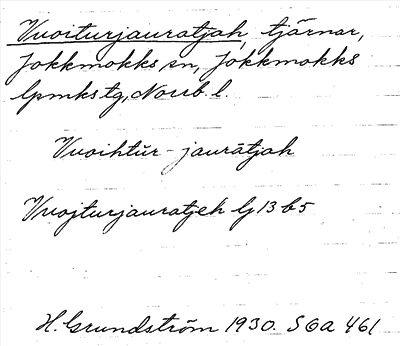 Vuoiturjauratjah, tjärnar,
Jokkmokks sn, Jokkmokks
lpmks tg, Norrb. l.
Vuoihtŭr-jaurātjah
Vuojturjauratjeh lj 13 b 5
H. Grundström 1930. SOA 461